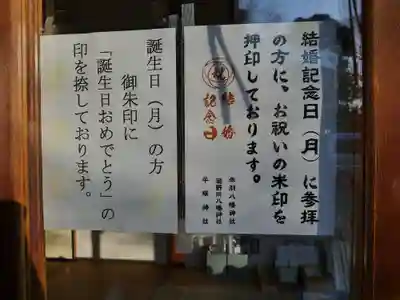 結婚記念日(月)に参拝
の方に、お祝いの朱印を
押印しております。
祝
結婚
記念日
赤羽八幡神社
平塚神社
誕生日(月)の方
御朱印に
「誕生日おめでとう」の
印を捺しております。